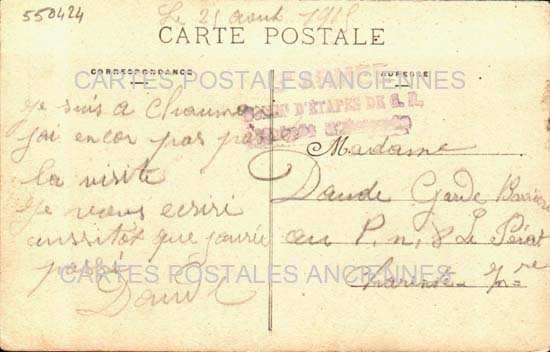 550424
Le 21 Aout 1915
CARTE POSTALE
CORRESPONDANCE
ADRESSE
CARTES POSTALES ANCIENNES
D'ETAPES DE G. R.
Je suis a Chaumo
jai encor pas pas
la visite
Je vous ecriri
aussitot que jaurée
passé
Daude
Madame
Daude Garde Barriere
au P. n. 8 Le Pérat
Charente-Inre
CARTES POSTALES ANCIENNES